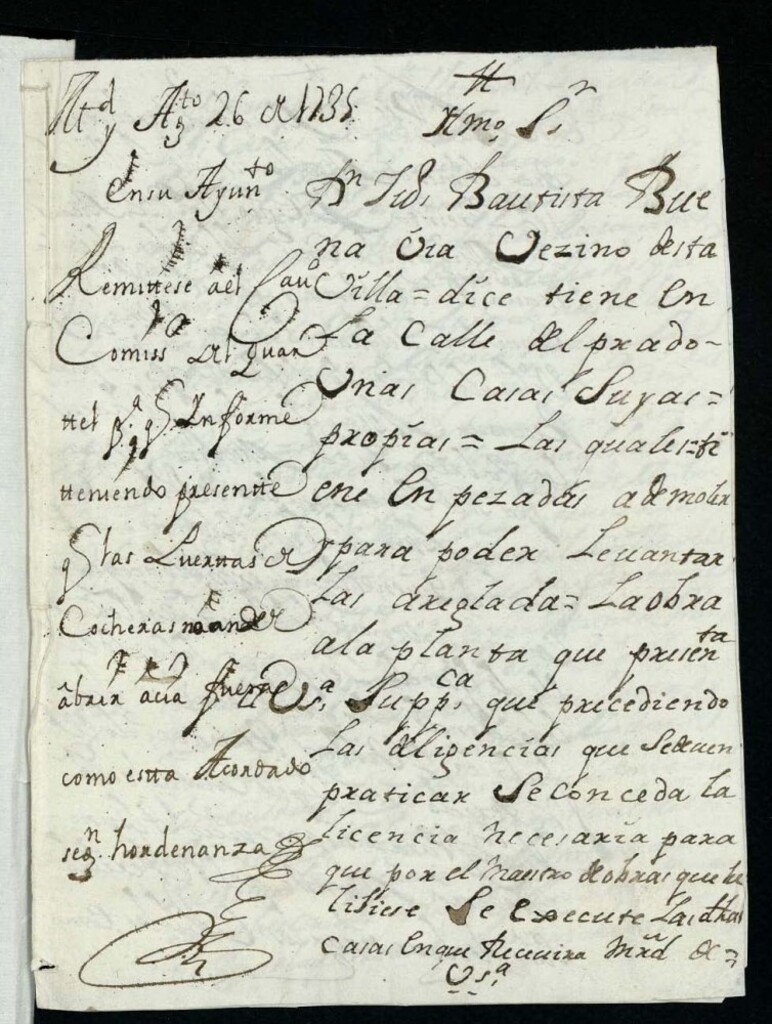 Md y Agto 26 de 1735
En su Ayunto
Remittese ael Cauo
Comiss del quar
ttel pa q Informe
tteniendo presentte
q las Puerttas de
Cocheras no ande
abrir acia fuera
como estta Acordado
segn hordenanza
Ylmo Sr
Dn Bautista Bue
na Vezino desta
Villa = dice tiene en
La Calle del prado
Unas Casas Suyas =
propias = Las quales = ti
ene Enpezadas a demoler
y para poder Levantar
Las areglada = La obra
ala planta que presenta
a Vsa Suppca que precediendo
Las diligencias que Sedeuen
praticar Se Conceda la
licencia necesaria para
que por el Maestro de obras que he
lijiese Se Execute Las dhas
Casas En que Receuira Mrd de =
Vsa